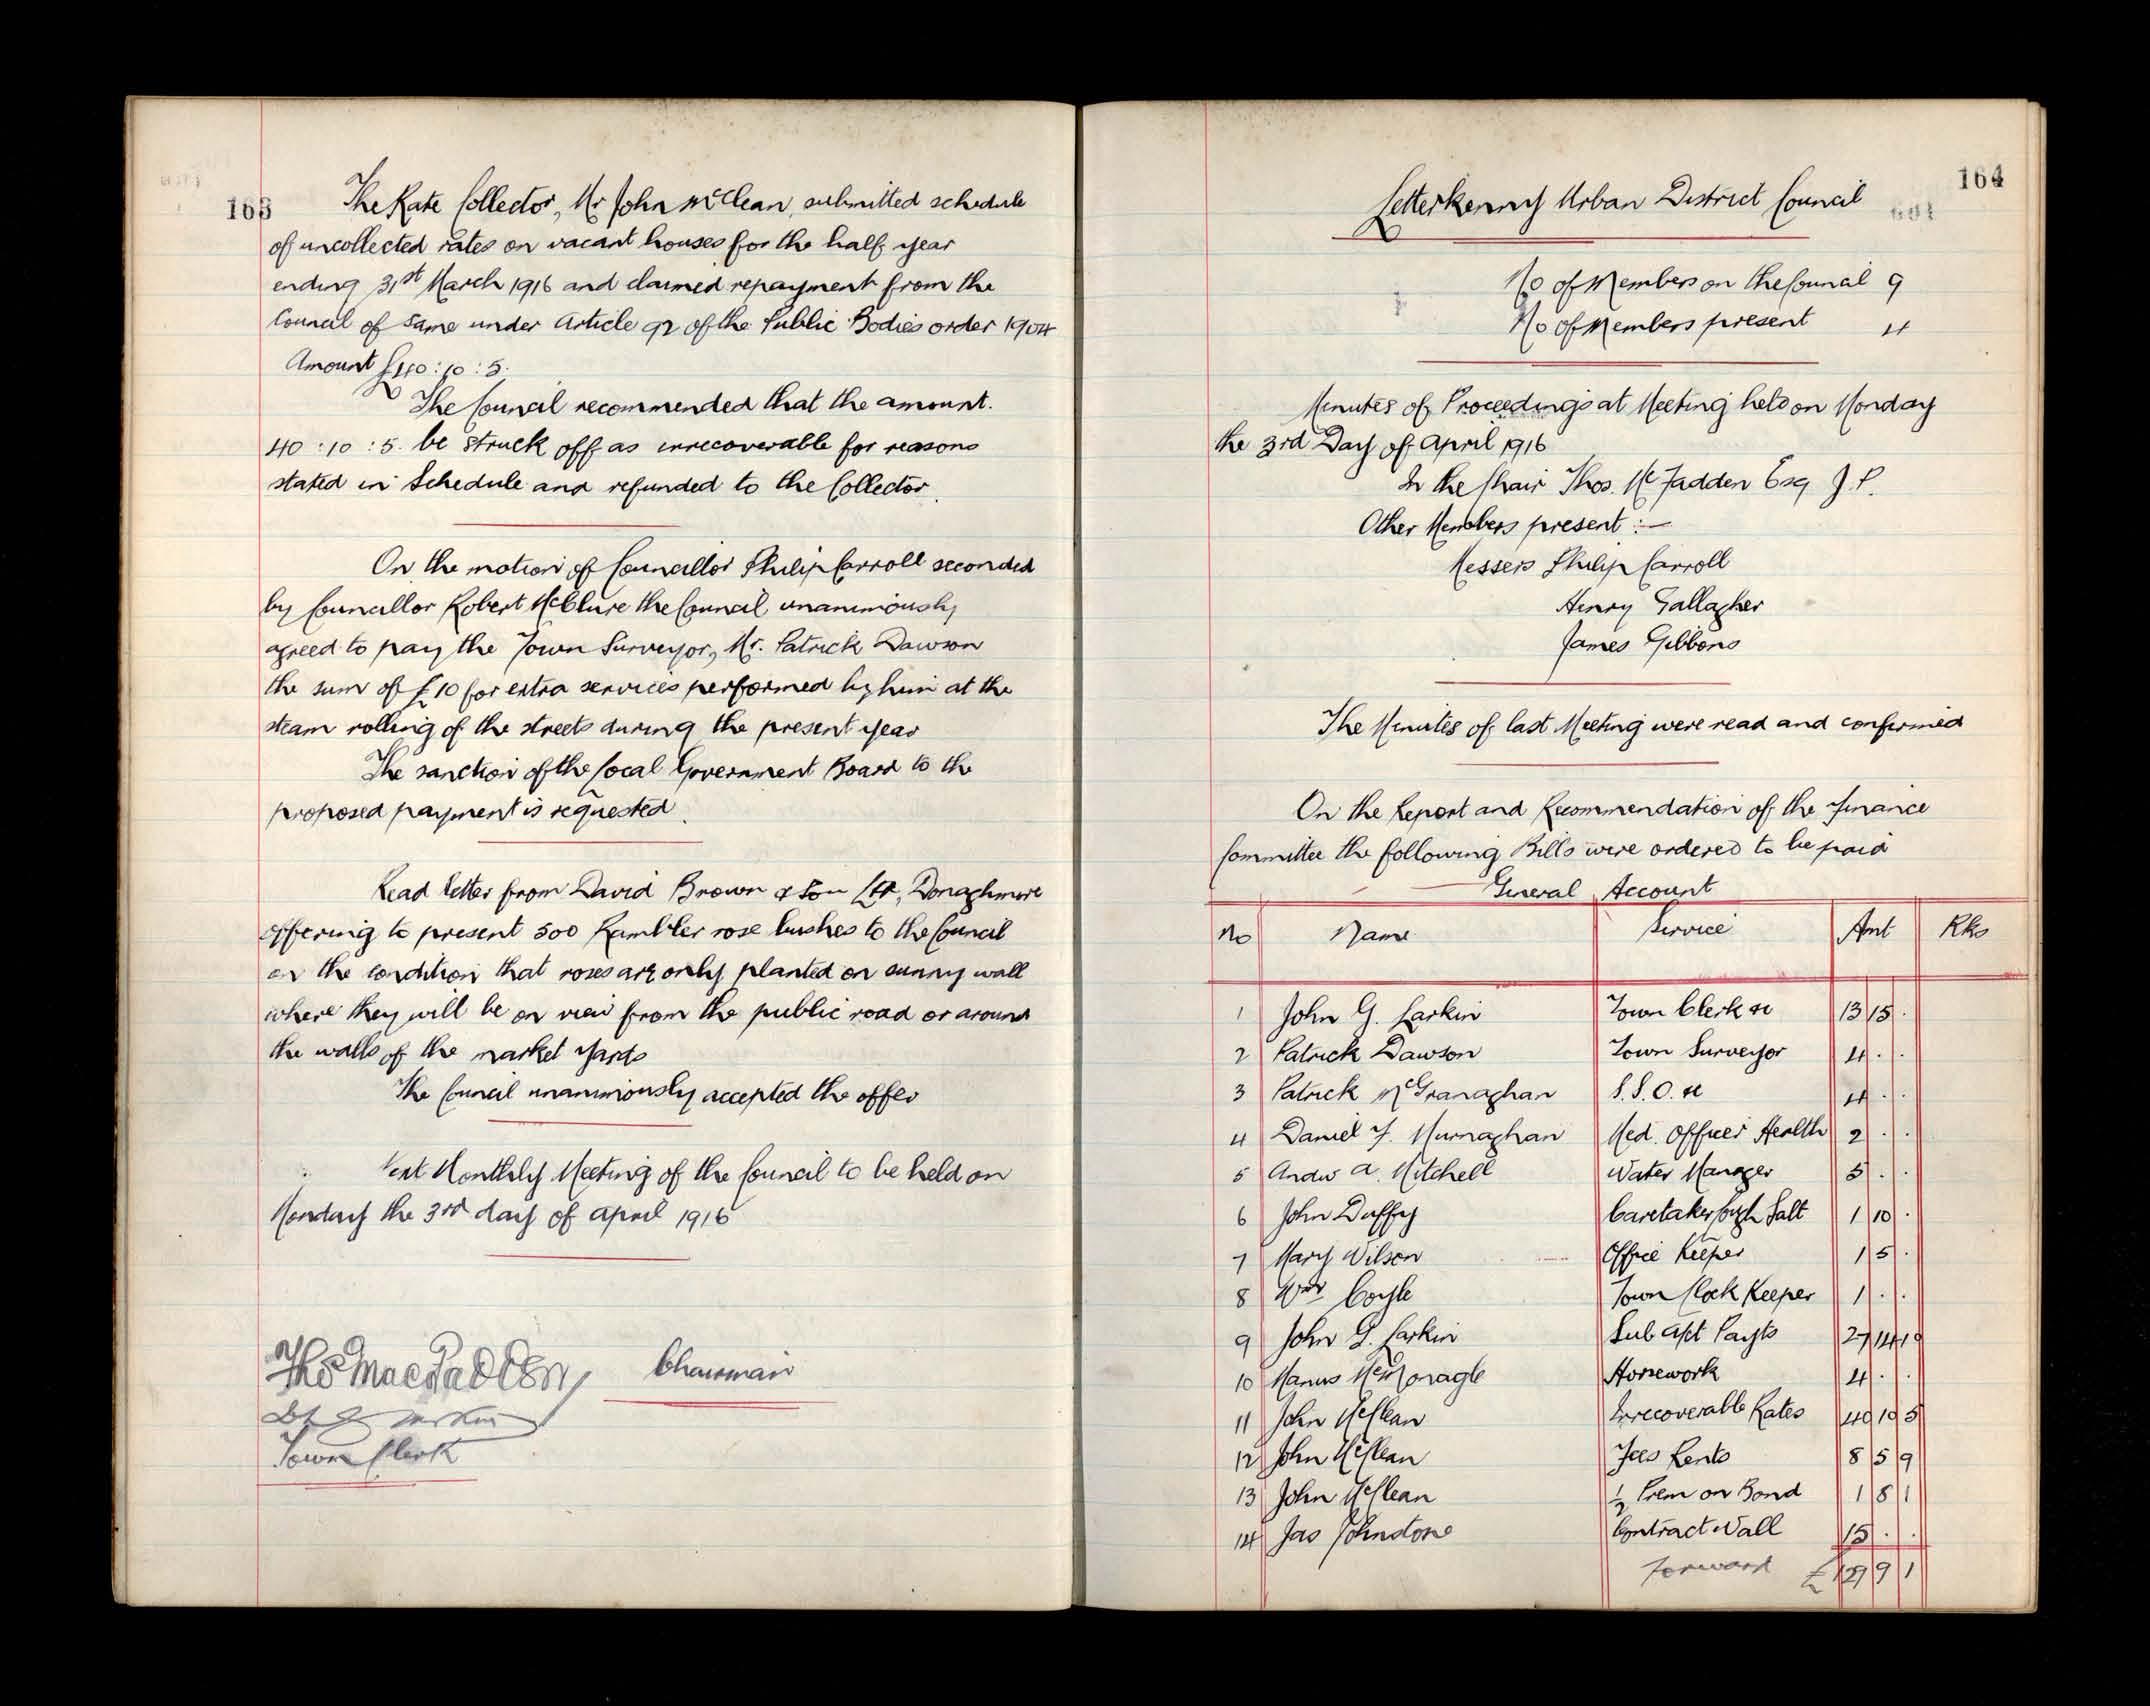 163
The Rate Collector, Mr John McClean, submitted schedule
of uncollected rates on vacant houses for the half year
ending 31st March 1916 and claimed repayment from the
Council of same under Article 92 of the Public Bodies order 1904
Amount £40 : 10 : 5.
The Council recommended that the amount.
40 : 10 : 5. be struck off as irrecoverable for reasons
stated in Schedule and refunded to the Collector.
On the motion of Councillor Philip Carroll seconded
by Councillor Robert McClure the Council unanimously
agreed to pay the Town Surveyor, Mr. Patrick Dawson
the sum of £10 for extra services performed by him at the
steam rolling of the streets during the present year
The sanction of the Local Government Board to the
proposed payment is requested.
Read letter from David Brown & Son Ltd, Donaghmore
offering to present 500 Rambler rose bushes to the Council
on the condition that roses are only planted on sunny wall
where they will be on view from the public road or around
the walls of the market yards
The Council unanimously accepted the offer
Next Monthly Meeting of the Council to be held on
Monday the 3rd day of April 1916
Thos MacFadden Chairman
Town Clerk
164
Letterkenny Urban District Council
No of Members on the Council 9
No of Members present 4
Minutes of Proceedings at Meeting held on Monday
the 3rd Day of April 1916
In the Chair Thos. McFadden Esq J.P.
Other Members present :—
Messers Philip Carroll
Henry Gallagher
James Gibbons
The Minutes of last Meeting were read and confirmed
On the Report and Recommendation of the Finance
Committee the following Bills were ordered to be paid
General Account
No Name Service Amt Rks
1 John G. Larkin Town Clerk &c 13 15 .
2 Patrick Dawson Town Surveyor 4 . .
3 Patrick McGranaghan S.S.O. &c 4 . .
4 Daniel F. Murnaghan Med. Officer Health 2 . .
5 Andw A. Mitchell Water Manager 5 . .
6 John Duffy Caretaker Lough Salt 1 10 .
7 Mary Wilson Office Keeper 1 5 .
8 Wm Coyle Town Clock Keeper 1 . .
9 John G. Larkin Sub Apt Payts 27 14 10
10 Manus McMonagle Horsework 4 . .
11 John McClean Irrecoverable Rates 40 10 5
12 John McClean Fees Rents 8 5 9
13 John McClean ½ Prem on Bond 1 8 1
14 Jas Johnstone Contract Wall 15 . .
forward £129 9 1